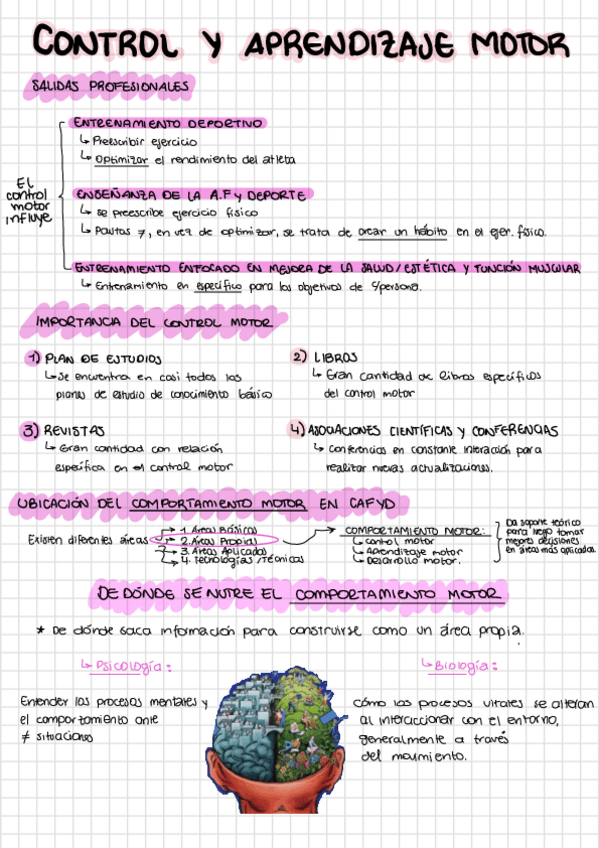 CONTROL Y APRENDIZAJE MOTOR
SALIDAS PROFESIONALES
El control motor influye
ENTRENAMIENTO DEPORTIVO
↳ Preescribir ejercicio
↳ Optimizar el rendimiento del atleta
ENSEÑANZA DE LA A.F y DEPORTE
↳ se preescribe ejercicio físico
↳ Pautas ≠, en vez de optimizar, se trata de crear un hábito en el ejer. físico.
ENTRENAMIENTO ENFOCADO EN MEJORA DE LA SALUD/ESTÉTICA Y FUNCIÓN MUSCULAR
↳ Entrenamiento en específico para los objetivos de c/persona.
IMPORTANCIA DEL CONTROL MOTOR
1) PLAN DE ESTUDIOS
↳ Se encuentra en casi todos los
planes de estudio de conocimiento básico
2) LIBROS
↳ Gran cantidad de libros específicos
del control motor
3) REVISTAS
↳ Gran cantidad con relación
específica en el control motor
4) ASOCIACIONES CIENTÍFICAS Y CONFERENCIAS
↳ Conferencias en constante interacción para
realizar nuevas actualizaciones.
UBICACIÓN DEL COMPORTAMIENTO MOTOR EN CAFYD
Existen diferentes áreas
1. Áreas Básicas
2. Áreas Propias
3. Áreas Aplicadas
4. Tecnologías/Técnicas
COMPORTAMIENTO MOTOR:
↳ Control motor
↳ Aprendizaje motor
↳ Desarrollo motor.
Da soporte teórico
para luego tomar
mejores decisiones
en áreas más aplicadas.
DE DÓNDE SE NUTRE EL COMPORTAMIENTO MOTOR
* De dónde saca información para construirse como un área propia.
↳ Psicología:
Entender los procesos mentales y
el comportamiento ante
≠ situaciones
↳ Biología:
Cómo los procesos vitales se alteran
al interaccionar con el entorno,
generalmente a través
del movimiento.